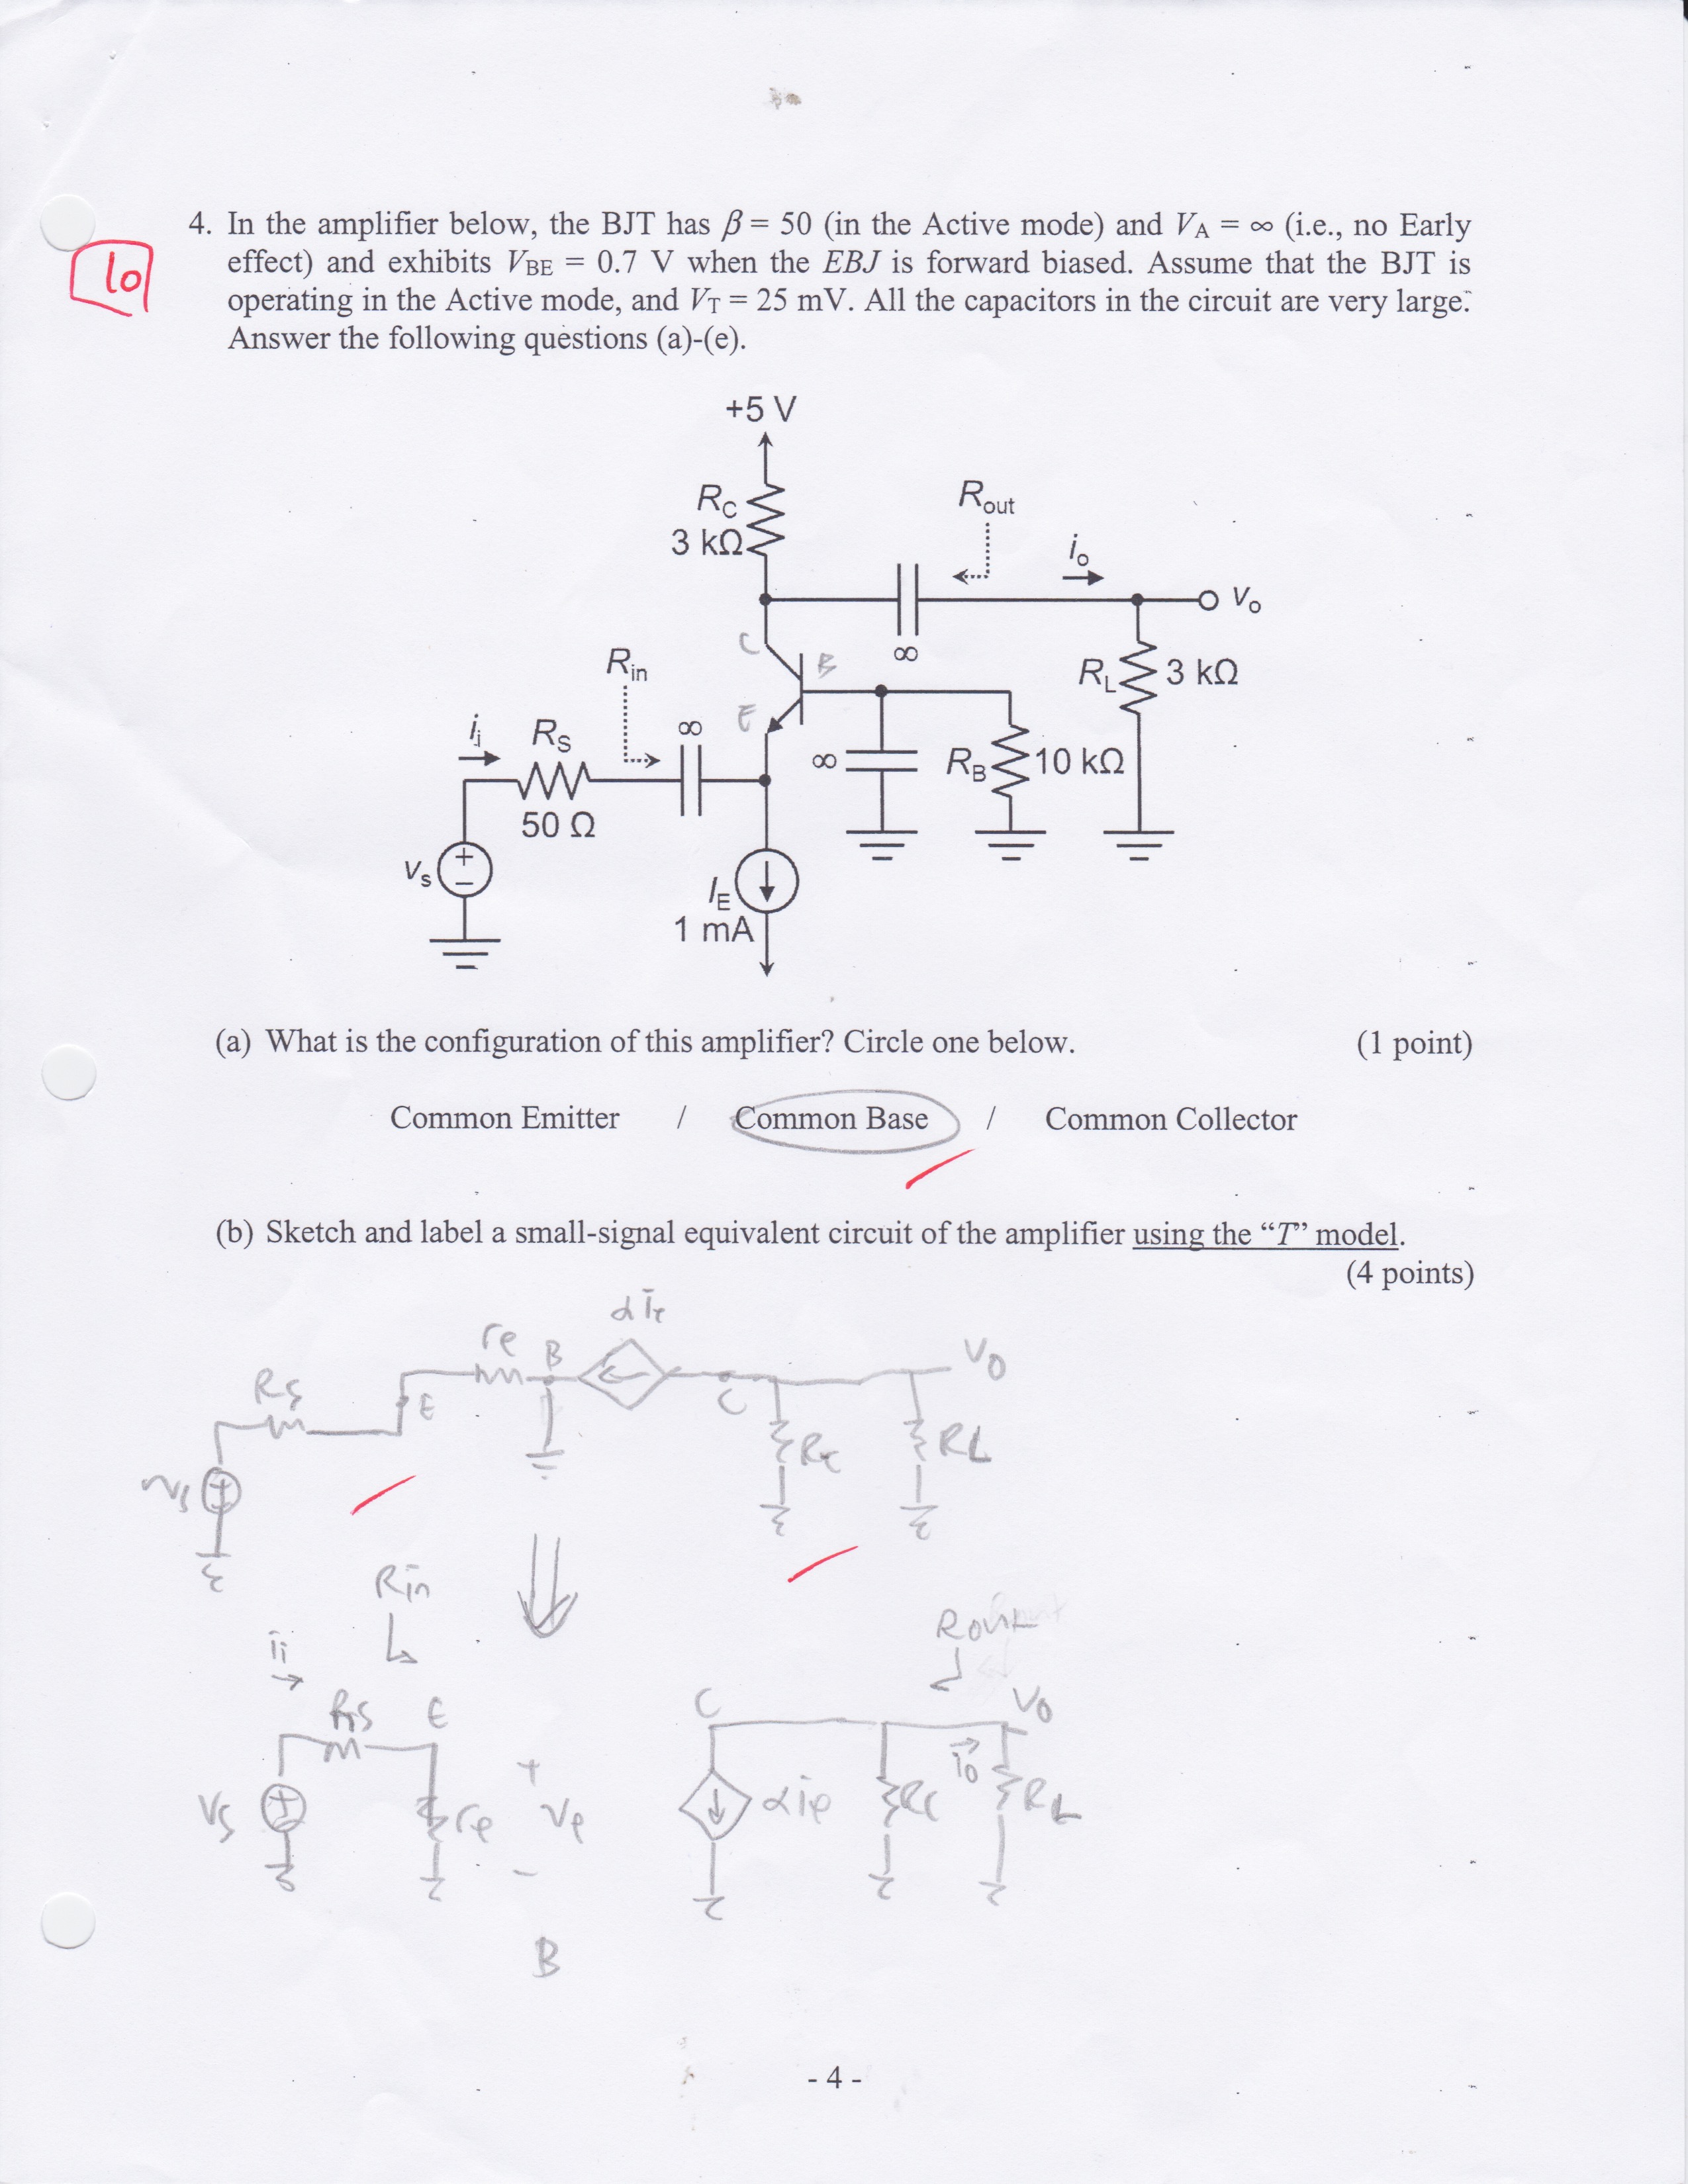 10
4. In the amplifier below, the BJT has β = 50 (in the Active mode) and VA = ∞ (i.e., no Early
effect) and exhibits VBE = 0.7 V when the EBJ is forward biased. Assume that the BJT is
operating in the Active mode, and VT = 25 mV. All the capacitors in the circuit are very large.
Answer the following questions (a)-(e).
+5 V
RC
3 kΩ
Rout
io
vo
C
B
E
∞
RL
3 kΩ
Rin
ii
RS
50 Ω
∞
∞
RB
10 kΩ
vs
+
−
IE
1 mA
(a) What is the configuration of this amplifier? Circle one below. (1 point)
Common Emitter / Common Base / Common Collector
(b) Sketch and label a small-signal equivalent circuit of the amplifier using the “T” model.
(4 points)
αie
re
B
Vo
RS
E
C
RC
RL
vs
Rin
Rout
ii
RS
E
C
Vo
io
Vs
re
+
Ve
−
αie
RC
RL
B
- 4 -